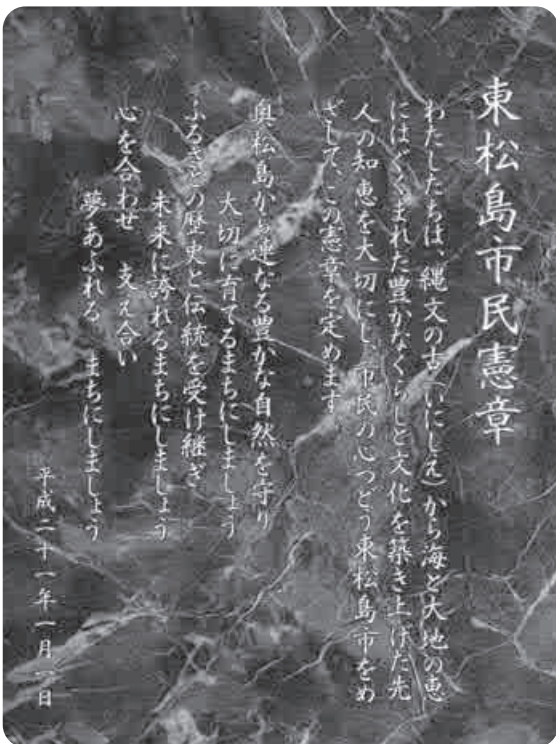 東松島市民憲章
わたしたちは、縄文の古（いにしえ）から海と大地の恵
にはぐくまれた豊かなくらしと文化を築き上げた先
人の知恵を大切にし、市民の心つどう東松島市をめ
ざして、この憲章を定めます。
奥松島から連なる豊かな自然を守り
大切に育てるまちにしましょう
ふるさとの歴史と伝統を受け継ぎ
未来に誇れるまちにしましょう
心を合わせ　支え合い
夢あふれる　まちにしましょう
平成二十一年一月一日